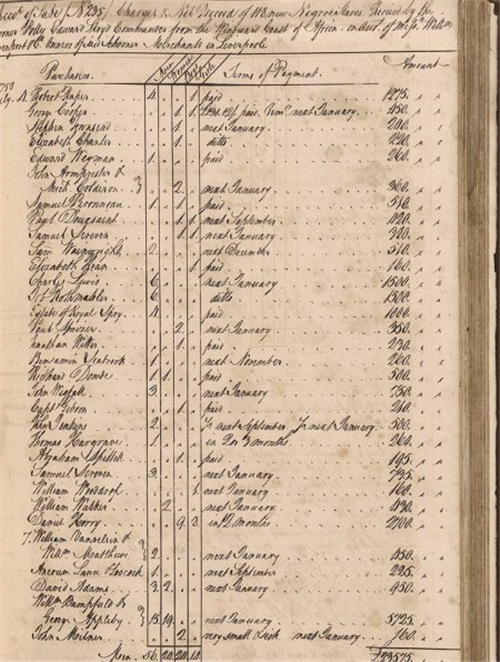 Acco.t of Sale (N.o 235) Charges & Net Proceed of new Negroe Slaves Received by the
Schooner Holly Edward Lloyd Commander from the Windward Coast of Africa on Acco.t of Mess.rs Will.m
Davenport & C.o Owners of said Schooner Merchants in Liverpoole
Purchasers Men Women Boys Girls Terms of Payment Amount
Robert Raper 4. 1 paid 1275
George Cooper 1. 1 paid. next January 450
Stephen Townsend 1 next January 240
Elizabeth Chanler 1 ditto 220
Edward Weyman 1. paid 260
John Armpriester &
Mich. Colderon 2. next January 360
Samuel Peronneau 1. 1. paid 510
Paul Douxsaint 1. 1 next September 420
Samuel Screven 1. 1 next January 300
Sam Wainwright 2. next December 510
Elizabeth Bean 1 paid 160
Charles Lewis 6. next January 1500
Job Rothmahler 6. ditto 1500
Estate of Royal Spry 4. paid 1000
2. next January 350
Jonathan Witter 1. paid 230
Benjamin Seabrook 1. next November 260
Richard Downe 1. 1. paid 500
John Wigfall 3. next January 750
Capt Tebron 1. paid 210
Jenkins 2. next September next January 500
Thomas Hargrave 1. in 2 or 3 months 260
Abraham Spidell 1. paid 195
Samuel Screven 3. next January 735
William Woodrop 1 next January 160
William Walker 2. next January 430
Daniel Horry 9. 3 in 12 months 2100
7. William Dannelrin &
Will.m Matthews 2 next January 450
Ancrum Lance & Loocock 1. next September 225
David Adams 3. 2. next January 950
Will.m Bampfield &
George Appleby 15. 19. next January 5725
John Milner 2 very small & sick next January 160
Men 56. £23575